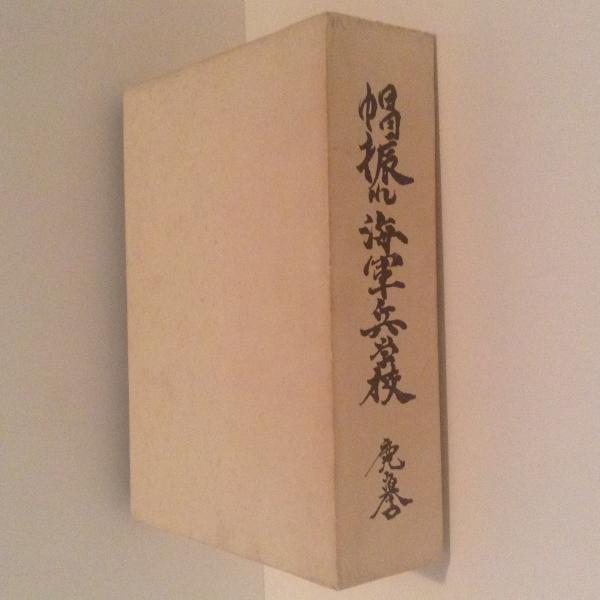 帽振れ海軍兵学校